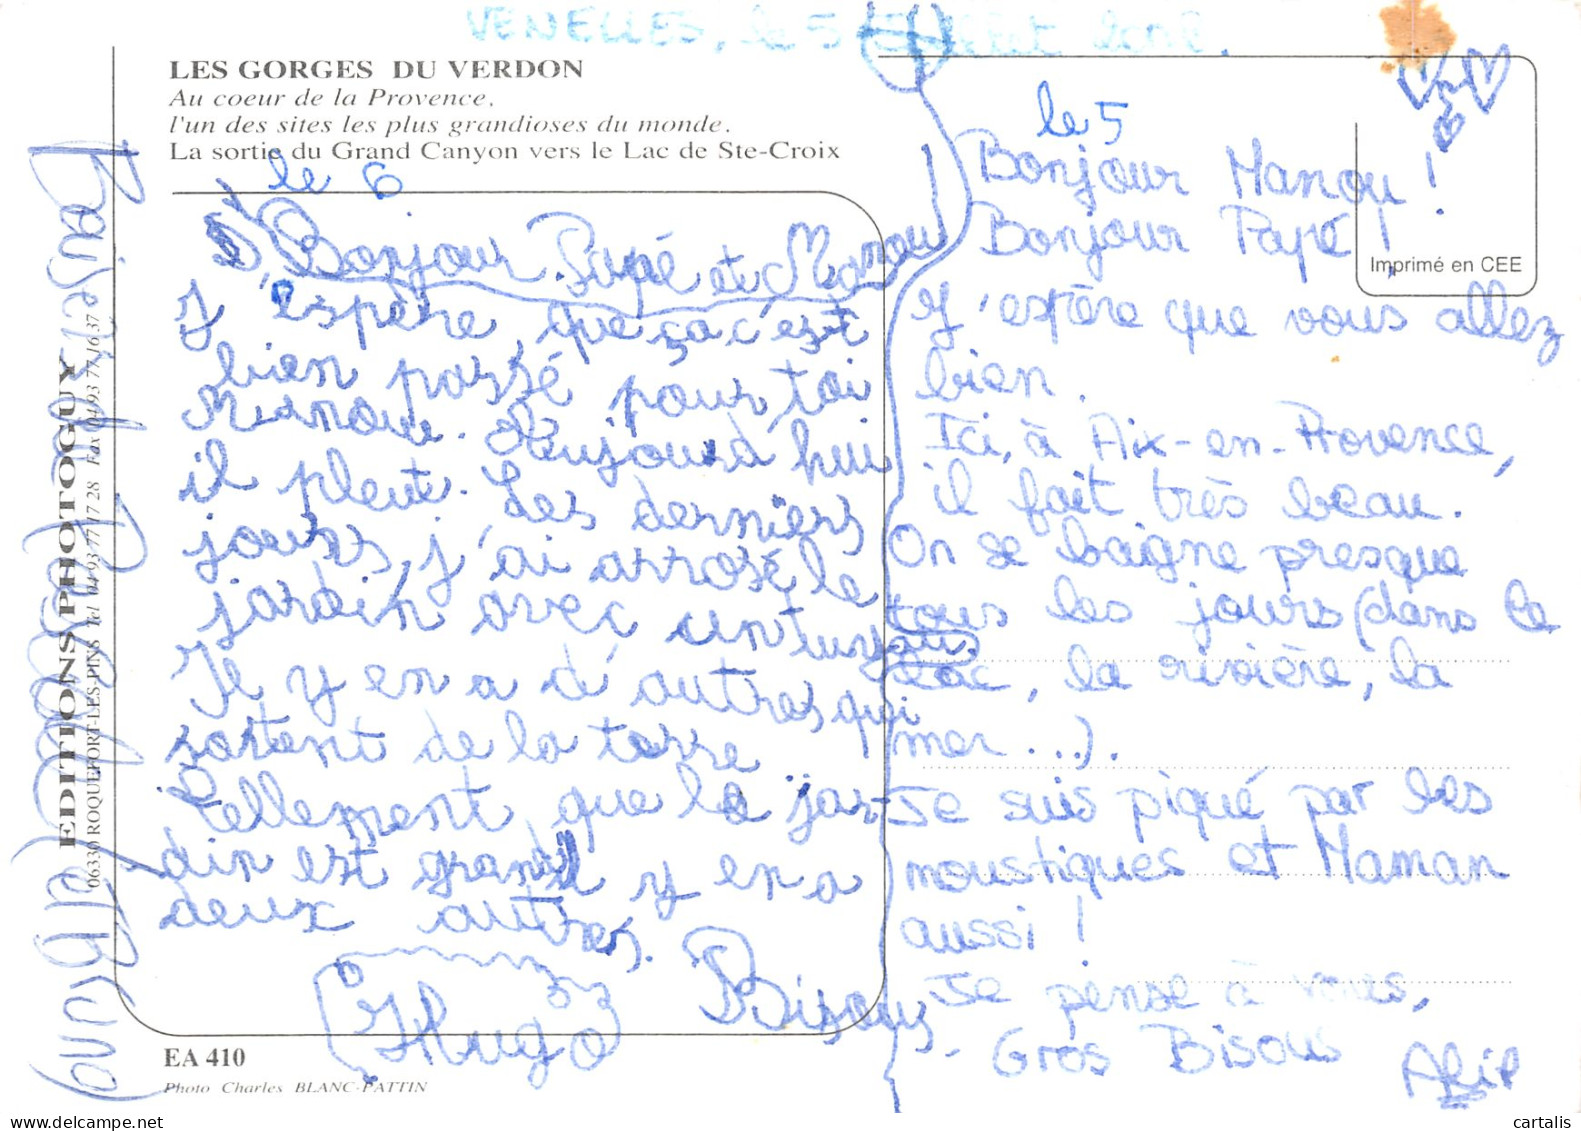 VENELLES, le 5
LES GORGES DU VERDON
Au coeur de la Provence,
l'un des sites les plus grandioses du monde.
La sortie du Grand Canyon vers le Lac de Ste-Croix
le 6
Bonjour Papé et Manou
J'espère, que ça c'est
bien passé pour toi
Manou. Aujourd'hui
il pleut. Les derniers
jours, j'ai arrosé le
jardin avec un tuyau
Il y en a d'autres qui
sortent de la terre
Tellement que le jar-
din est grand il y en a
deux autres.
Hugo
Bisous
EA 410
Photo Charles BLANC-PATTIN
EDITIONS PHOTOGUY
06330 ROQUEFORT-LES-PINS Tel 04 93 77 17 28 Fax 04 93 77 16 37
Baisers de
le 5
Bonjour Manou !
Bonjour Papé !
Imprimé en CEE
J'espère que vous allez
bien.
Ici, à Aix-en-Provence,
il fait très beau.
On se baigne presque
tous les jours (dans le
lac, la rivière, la
mer ...).
Je suis piqué par les
moustiques et Maman
aussi !
Je pense à vous,
Gros Bisous
cartalis